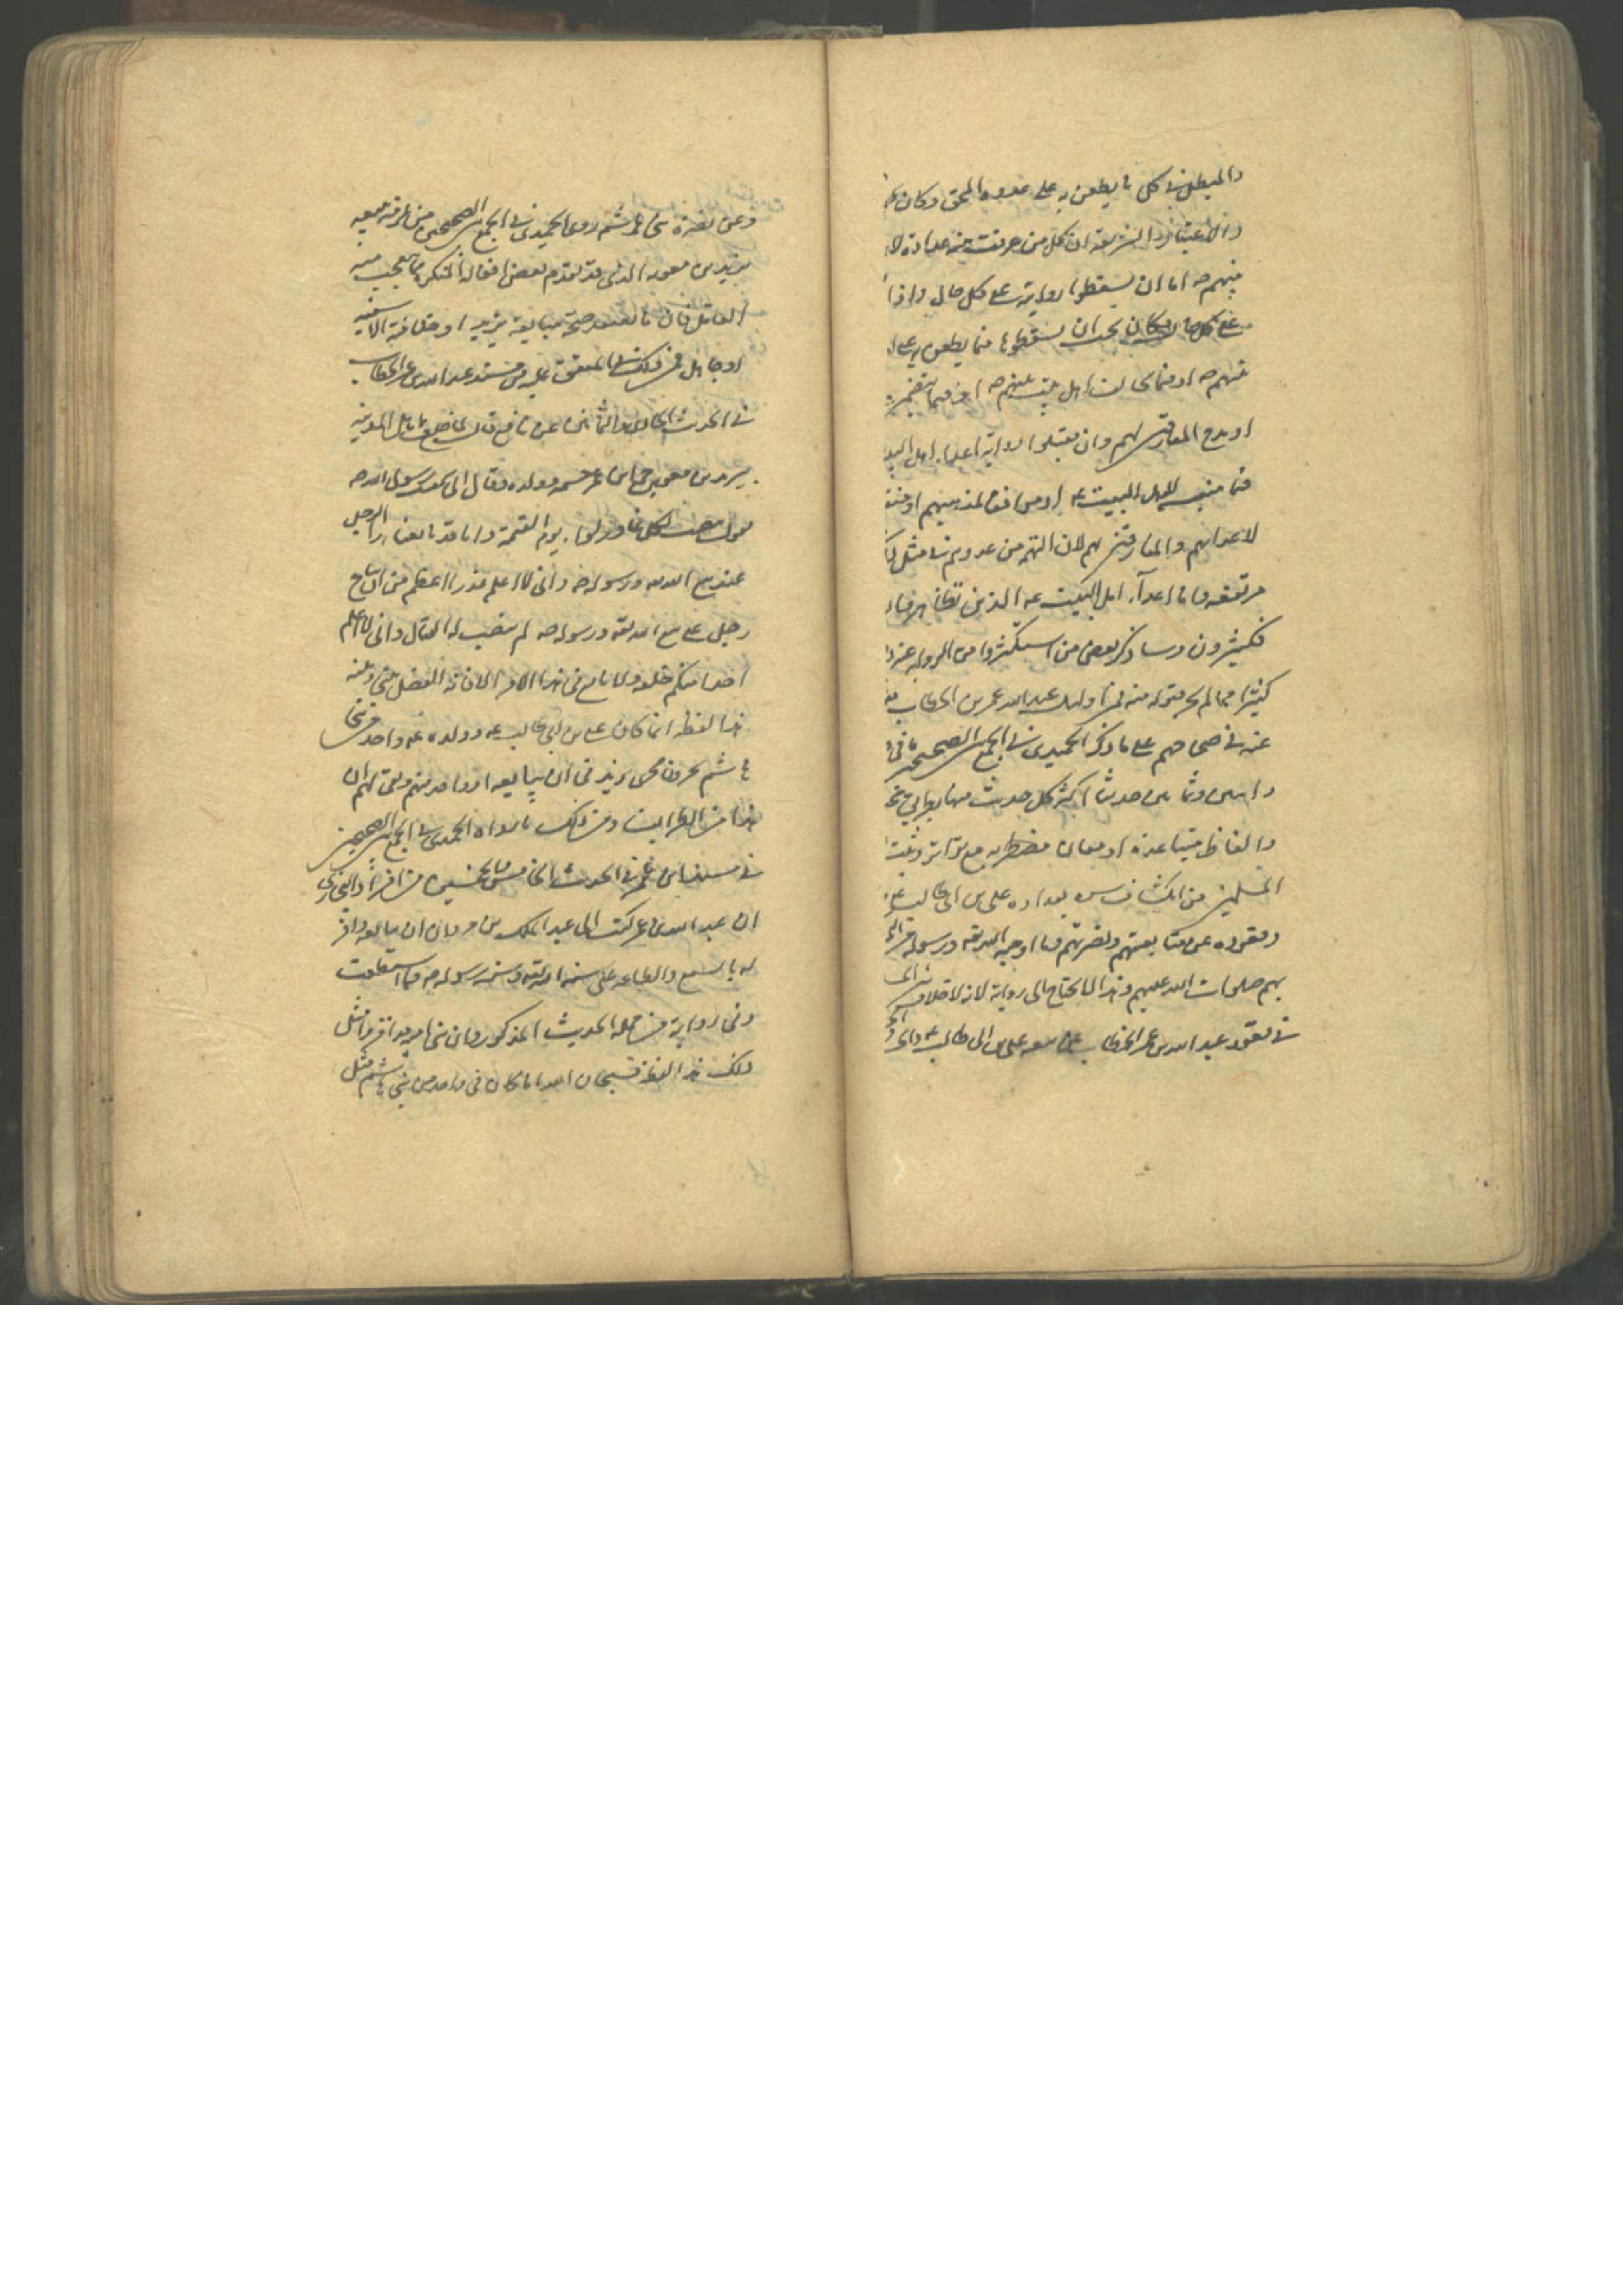 والمبطل في كل ما يطعن به على عدوه المحق وكان
والاعتبار والشريعة ان كل من عرفت منه عداوة
منهم ص اما ان يسقطوا روايته على كل حال واذا
على كل حال كان يجب ان يسقطوها فيما يطعن به على
نبيهم ص او فيما يخالف اهل بيت نبيهم ص او فيما يتضمن
او مدح المفارقين لهم وان يقبلوا رواية اعداء اهل
منقبة لاهل البيت ع او موافقة لمذهبهم او
لاعدائهم والمفارقين لهم لان التهم من عدوهم في مثل
مرتفعة فاما اعداء اهل البيت ع الذين تظاهر
فكثيرون وساذكر بعض من استكثروا من الرواية عنه
كثيرا مما لم يخرجوه منه فمن اولئك عبد الله عمر بن الخطاب
عنه في صحاحهم على ما ذكر الحميدي في الجمع بين الصحيحين
واثنين وثمانين حديثا اكثر كل حديث منها
والفاظ متباعدة او معان مضطربة مع تواتر وثبت
المسلمين من انكشاف بعداوة على بن ابى طالب
وقعوده عن متابعتهم ونصرتهم وما اوجبه الله تعه ورسوله من
بهم صلوات الله عليهم وهذا لا يحتاج الى رواية لانه لا خلاف
في قعود عبد الله بن عمر الخطاب عن بيعه على بن ابى طالب ع
وعن نصرة بنى هاشم روى الحميدي في الجمع بين الصحيحين من
يزيد بن معوية الذى قد تقدم بعض افعاله المنكرة ما تعجب منه
العاقل فان ما يعتقد صحة مبايعة يزيد او خلافته الا سفيه
او جاهل فمن ذلك في المتفق عليه من مسند عبد الله بن عمر الخطاب
في الحديث الحادى والثمانين عن نافع قال لما خلع اهل المدينة
يزيد بن معوية جمع ابن عمر حشمه وولده وقال انى سمعت رسول الله ص
يقول ينصب لكل غادر لواء يوم القيمة وانا قد بايعنا هذا الرجل
على بيع الله ورسوله ص وانى لا اعلم غدرا اعظم من ان نبايع
رجل على بيع الله تعه ورسوله ص ثم ينصب له القتال وانى لا اعلم
احدا منكم خلعه ولا تابع في هذا الامر الا كانت الفيصل بينى وبينه
هذا لفظه اما كان على بن ابى طالب ع وولده ع واحد من بنى
هاشم يجرون مجرى يزيد في ان يبايعه او واحد منهم
هذا من الطرائف ومن ذلك ما رواه الحميدي في الجمع بين الصحيحين
في مسند ابن عمر في الحديث الخامس والخمسين من افراد البخارى
ان عبد الله بن عمر كتب الى عبد الملك بن مروان ان يبايعه واقر
له بالسمع والطاعة على سنة الله تعه وسنة رسوله ص فيما استطعت
وفى رواية من جملة الحديث المذكور وان بنى قد اقروا مثل
ذلك هذا لفظه فسبحان الله اما كان في واحد من بنى هاشم مثل